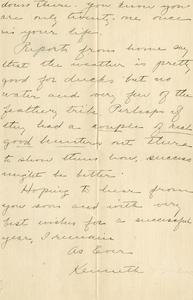 down there. You know you
are only twenty, one once
in your life.
Reports from home say
that the weather is pretty
good for ducks but no
water and very few of the
feathery tribe. Perhaps if
they had a couples of real
good hunters out there
to show them how, success
might be better.
Hoping to hear from
you soon and with very
best wishes for a successful
year, I remain
As Ever
Kenneth